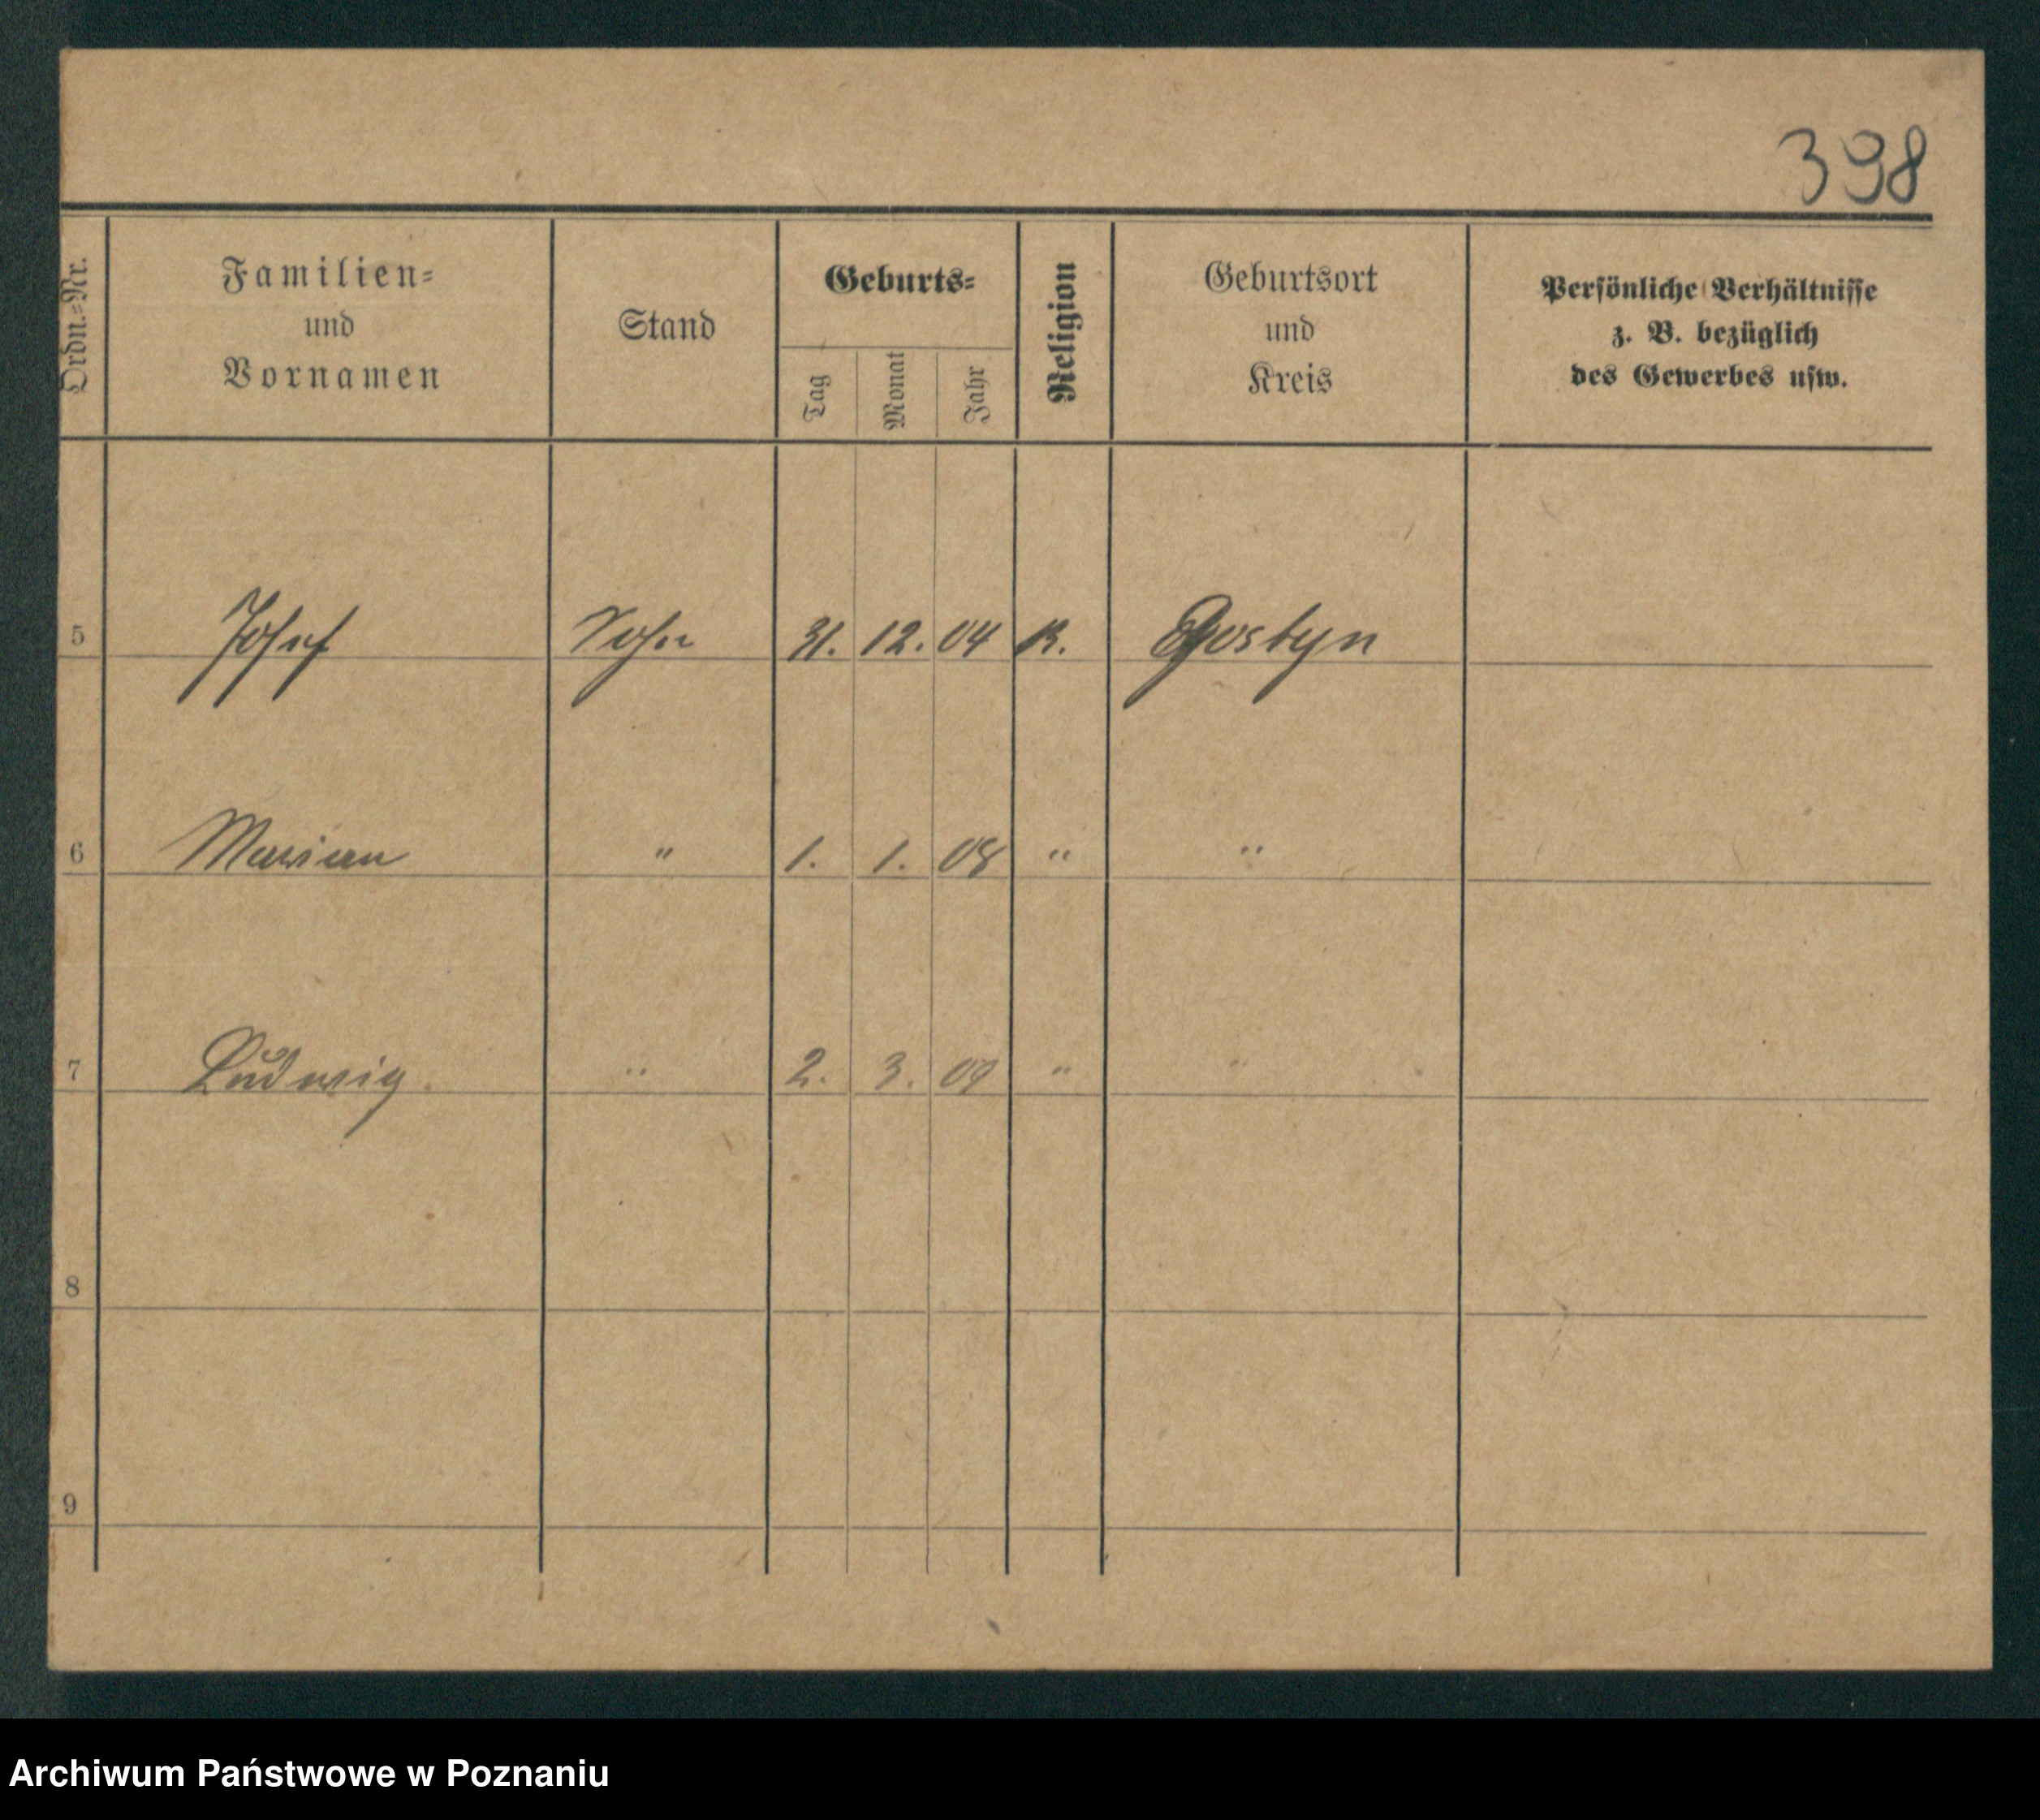 398
Ordn.-Nr. Familien- und Vornamen Stand Geburts- Tag Monat Jahr Religion Geburtsort und Kreis Persönliche Verhältnisse z. B. bezüglich des Gewerbes usw.
5 Josef Sohn 31. 12. 04 K. Gostyn
6 Marian " 1. 1. 08 " "
7 Ludwig. " 2. 3. 09 " "
8
9
Archiwum Państwowe w Poznaniu